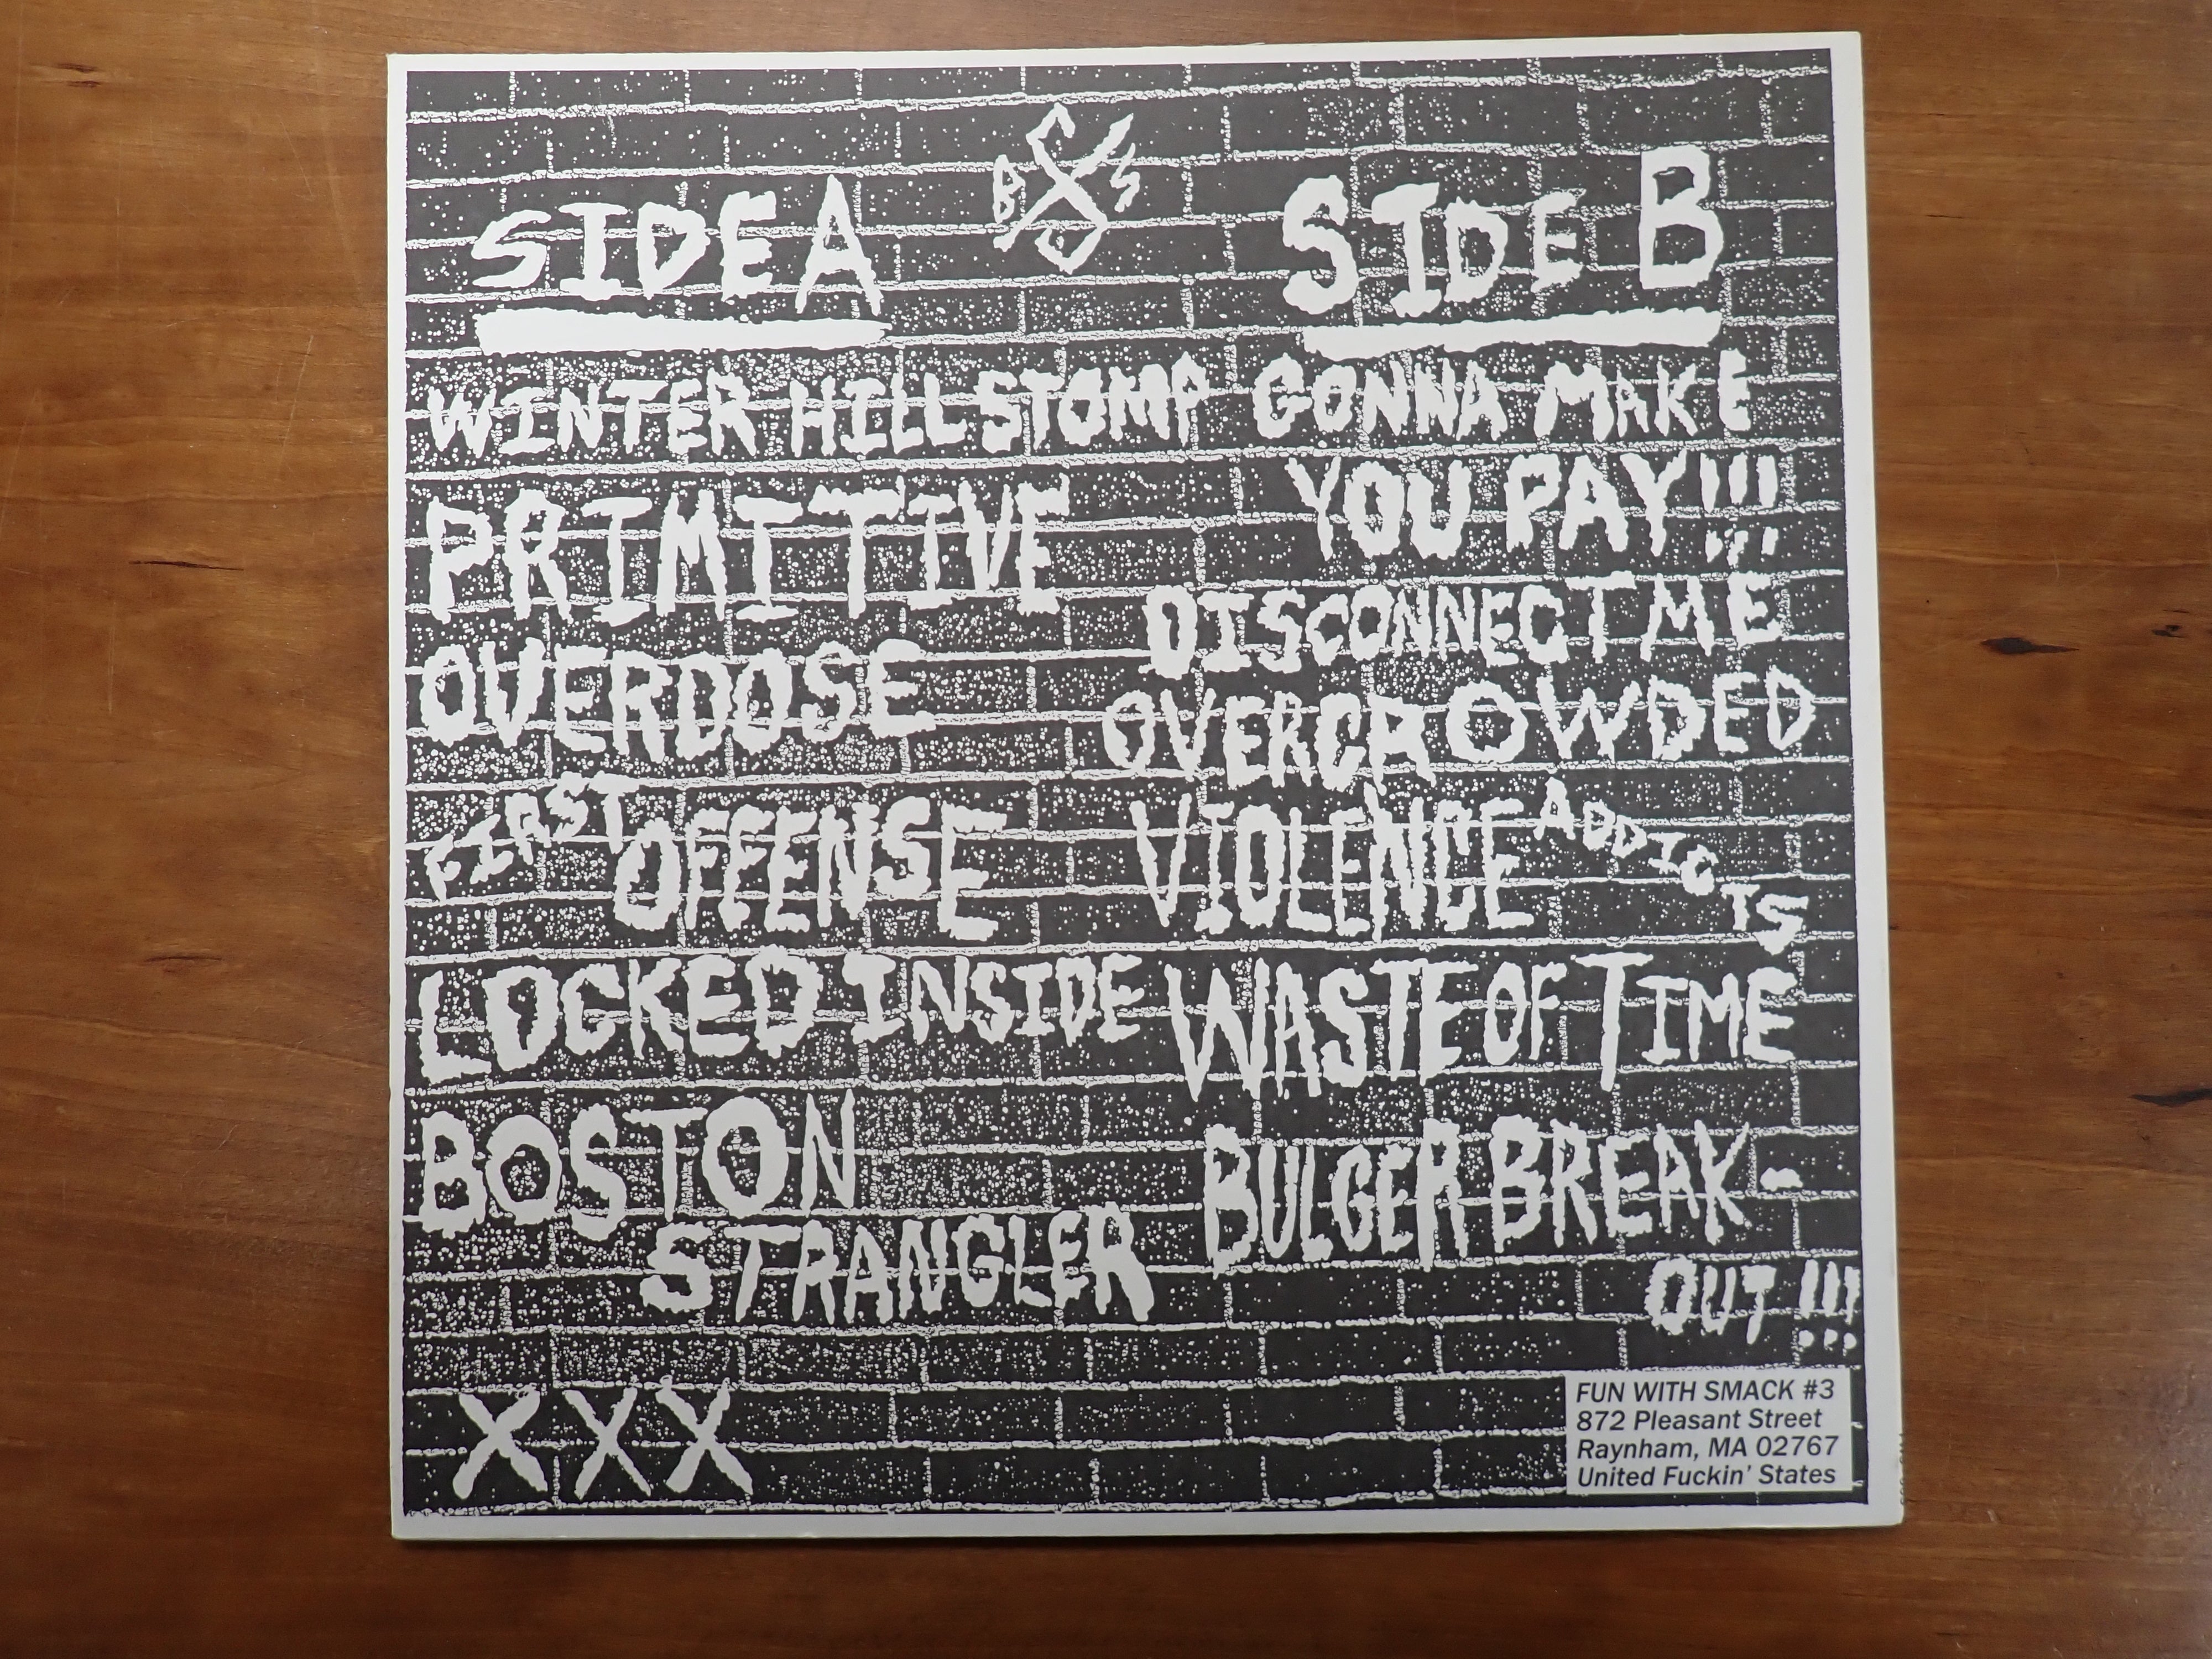 SIDE A
WINTER HILL STOMP
PRIMITIVE
OVERDOSE
FIRST OFFENSE
LOCKED INSIDE
BOSTON
STRANGLER
XXX
B S
SIDE B
GONNA MAKE
YOU PAY!!!
DISCONNECT ME
OVERCROWDED
VIOLENCE ADDICTS
WASTE OF TIME
BULGER BREAK-
OUT!!!
FUN WITH SMACK #3
872 Pleasant Street
Raynham, MA 02767
United Fuckin' States